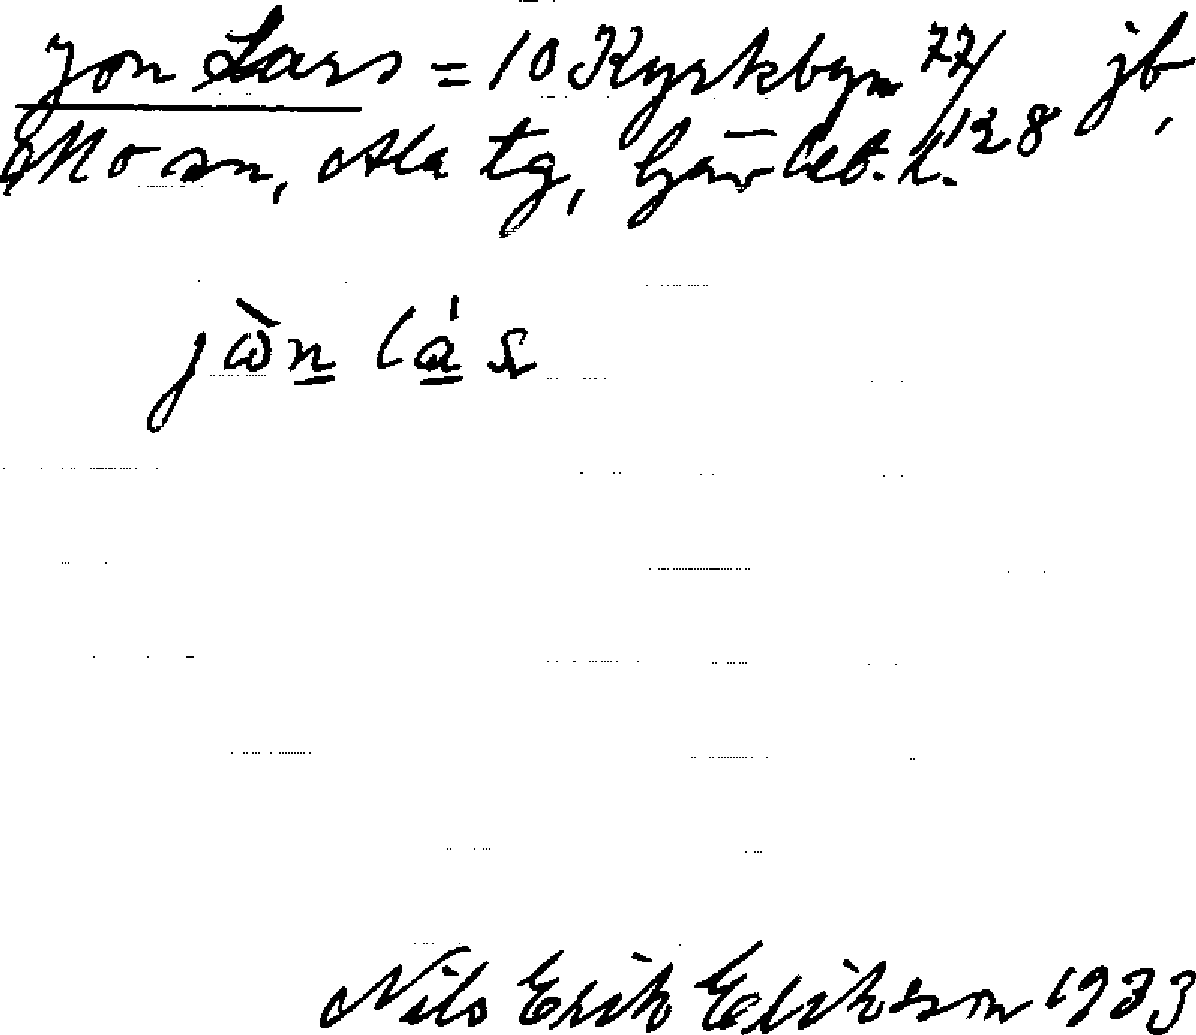 Jon Lars = 10 Kyrkbyn 77/128 jb,
Mo sn, Ala tg, Gävleb. l.
jòn lás
Nils Erik Erikson 1933